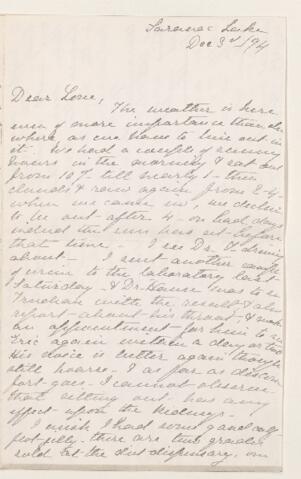 Saranac Lake
Dec 3rd /94
Dear Love,
The weather is here
even of more importance than else
where as one has to live out in
it. We had a couple of sunny
hours in the morning & sat out
from 10 7 till nearly 1 - then
clouds & rain again from 2-4
when we came in, we decline
to be out after 4 - on bad days
indeed the sun has set before
that time - I see Dr. T. driving
about - I sent another sample
of urine to the laboratory last
Saturday - & Dr House was to see
Trudeau with the result & also
report about his throat & make
an appointment for him to see
Eric again within a day or two
His voice is better again though
still hoarse - & as far as
goes - I cannot observe
that sitting out has any
effect upon the kidneys -
I wish I had some good calf
foot jelly - there are two grades
sold at the diet dispensary, one